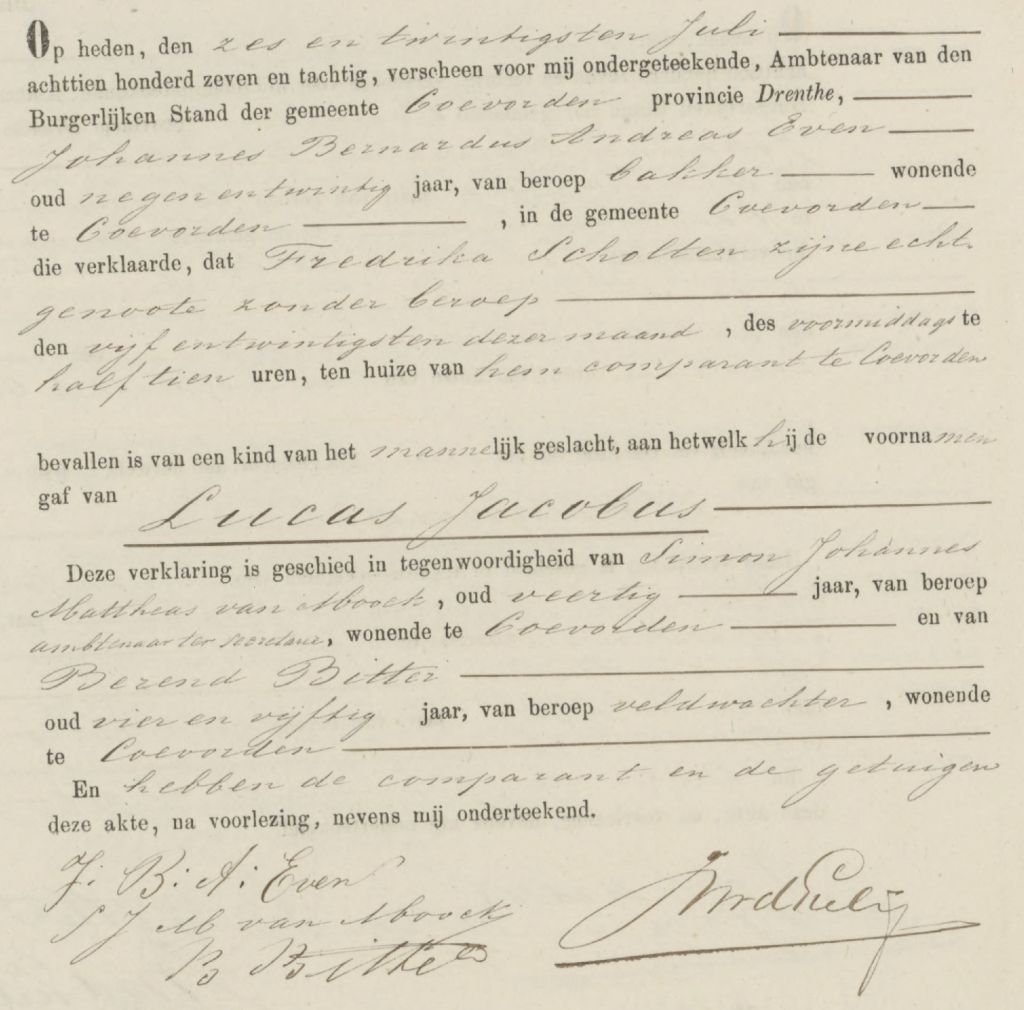 Op heden, den zes en twintigsten Juli
achttien honderd zeven en tachtig, verscheen voor mij ondergeteekende, Ambtenaar van den
Burgerlijken Stand der gemeente Coevorden provincie Drenthe,
Johannes Bernardus Andreas Even
oud negenentwintig jaar, van beroep bakker wonende
te Coevorden , in de gemeente Coevorden
die verklaarde, dat Fredrika Scholten zijne echt
genoote zonder beroep
den vijf entwintigsten dezer maand , des voormiddags te
half tien uren, ten huize van hem comparant te Coevorden
bevallen is van een kind van het mannelijk geslacht, aan hetwelk hij de voornamen
gaf van Lucas Jacobus
Deze verklaring is geschied in tegenwoordigheid van Simon Johannes
Mattheas van Moock, oud veertig jaar, van beroep
ambtenaar ter secretarie, wonende te Coevorden en van
Berend Bitter
oud vier en vijftig jaar, van beroep veldwachter , wonende
te Coevorden
En hebben de comparant en de getuigen
deze akte, na voorlezing, nevens mij onderteekend.
J: B: A: Even
S J M van Moock
B Bitter